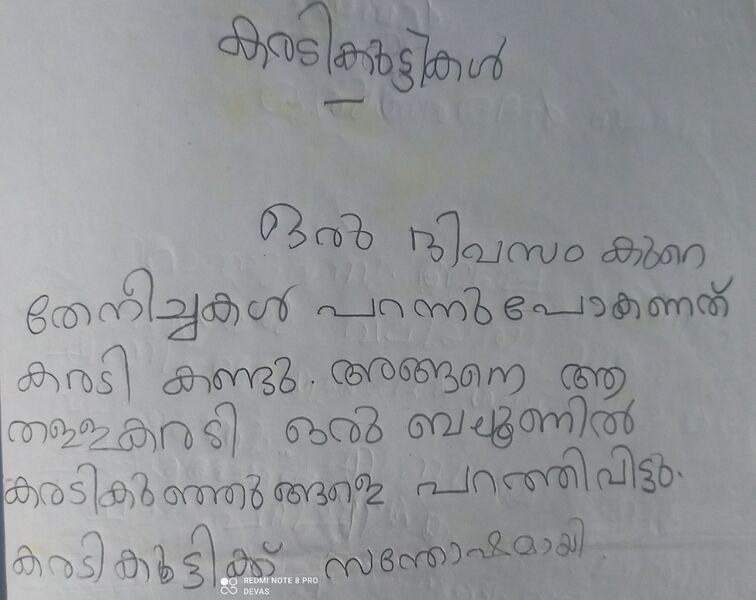 കരടികുട്ടികൾ
ഒരു ദിവസം കുറെ
തേനീച്ചകൾ പറന്നുപോകണത്
കരടി കണ്ടു. അങ്ങനെ ആ
തള്ളകരടി ഒരു ബലൂണിൽ
കരടികുഞ്ഞുങ്ങളെ പറത്തിവിട്ടു.
കരടികുട്ടിക്ക് സന്തോഷമായി.
REDMI NOTE 8 PRO
DEVAS